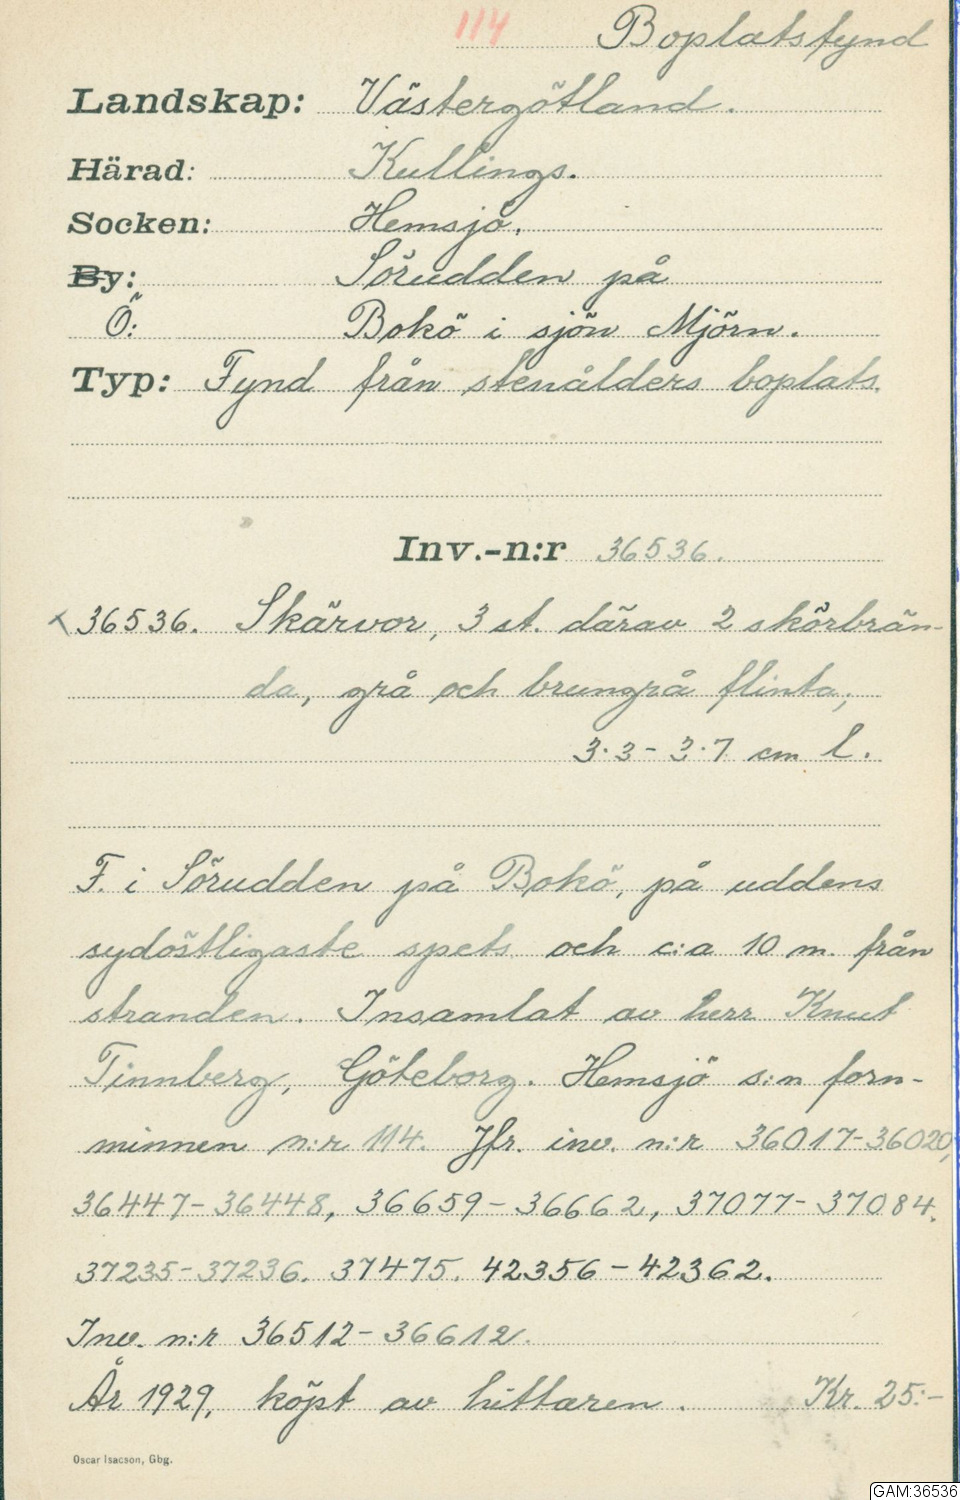 114 Boplatsfynd
Landskap: Västergötland.
Härad: Kullings.
Socken: Hemsjö.
By: Sörudden på
Ö: Bokö i sjön Mjörn.
Typ: Fynd från stenålders boplats.
Inv.-n:r 36536.
x 36536. Skärvor, 3 st. därav 2 skörbrän-
da, grå och brungrå flinta,
3.3 - 3.7 cm l.
F. i Sörudden på Bokö, på uddens
sydöstligaste spets och c:a 10 m. från
stranden. Insamlat av herr Knut
Tinnberg, Göteborg. Hemsjö s:n forn-
minnen n:r 114. Jfr. inv. n:r 36017-36020,
36447-36448, 36659-36662, 37077-37084.
37235-37236. 37475. 42356-42362.
Inv. n:r 36512-36612.
År 1929, köpt av hittaren. Kr. 25:-
Oscar Isacson, Gbg.
GAM:36536